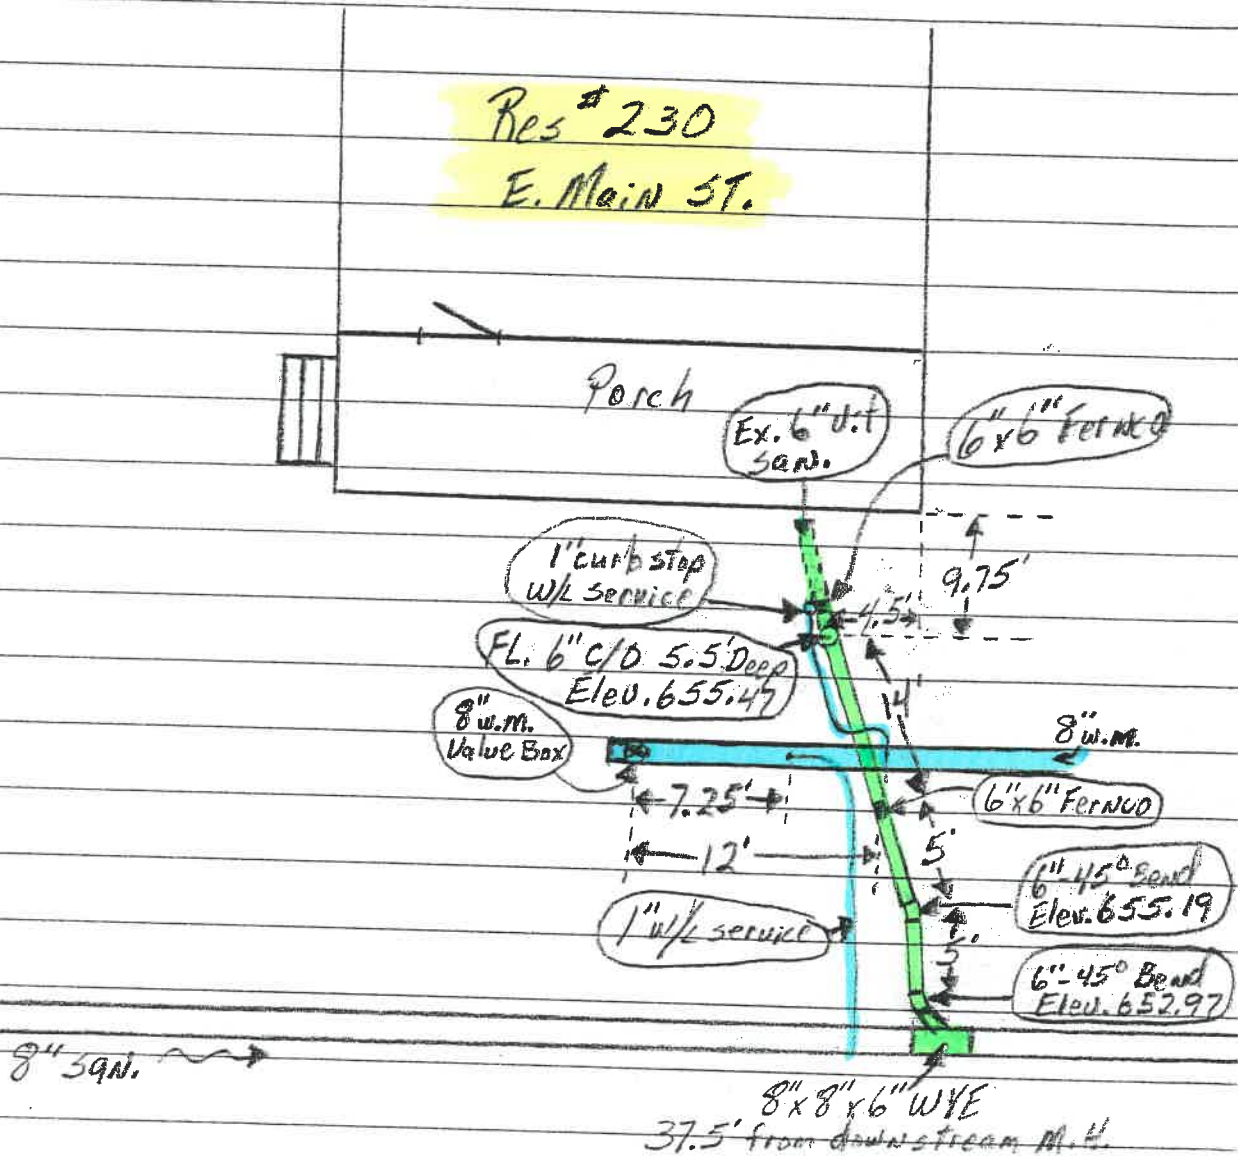 Res # 230
E. Main ST.
Porch
Ex. 6" V.t
San.
6"x6" Fernco
1" curb stop
W/L Service
9.75'
4.5'
FL. 6" C/O 5.5' Deep
Elev. 655.47
4'
8" w.m.
Value Box
8" w.m.
7.25'
6"x6" Fernco
12'
5'
6"-45° Bend
Elev. 655.19
1" w/L service
5'
6"-45° Bend
Elev. 652.97
8" San.
8"x8"x6" WYE
37.5' from downstream M.H.